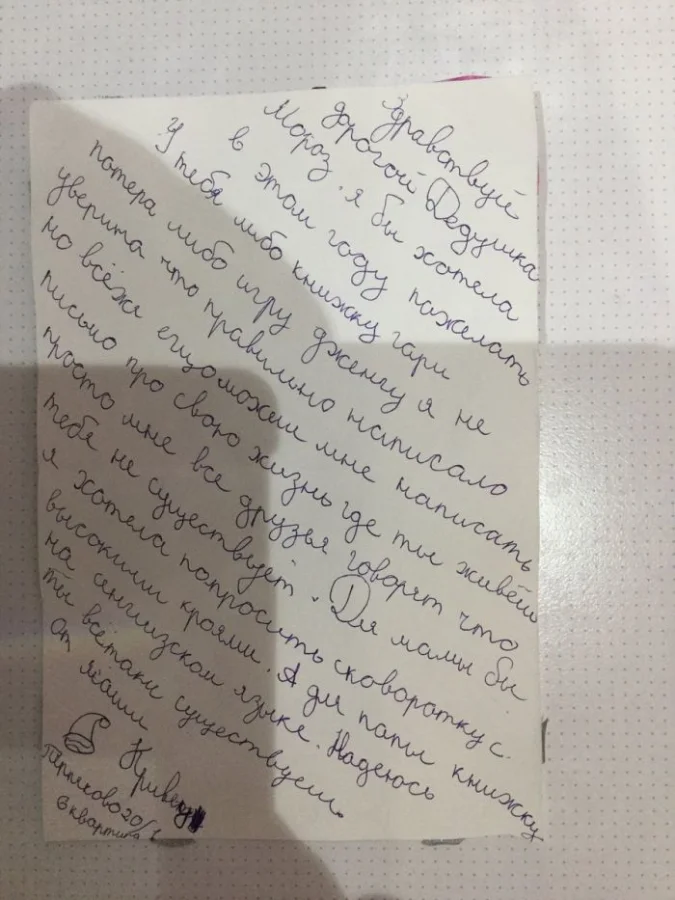 Здравствуй
дорогой Дедушка
Мороз. я бы хотела
в этом году пажелать
У тебя либо книжку гари
потера либо игру дженгу я не
уверина что правильно написало
но всёже ещо можеш мне написать
письмо про свою жизнь где ты живёш
просто мне все друзья говорят что
тебя не существует. Для мамы бы
я хотела попросить сковоротку с
высокими кроями. А для папы книжку
на англизском языке. Надеюсь
ты всётаки существуеш.
от
Кривец
20/1
6 квартира